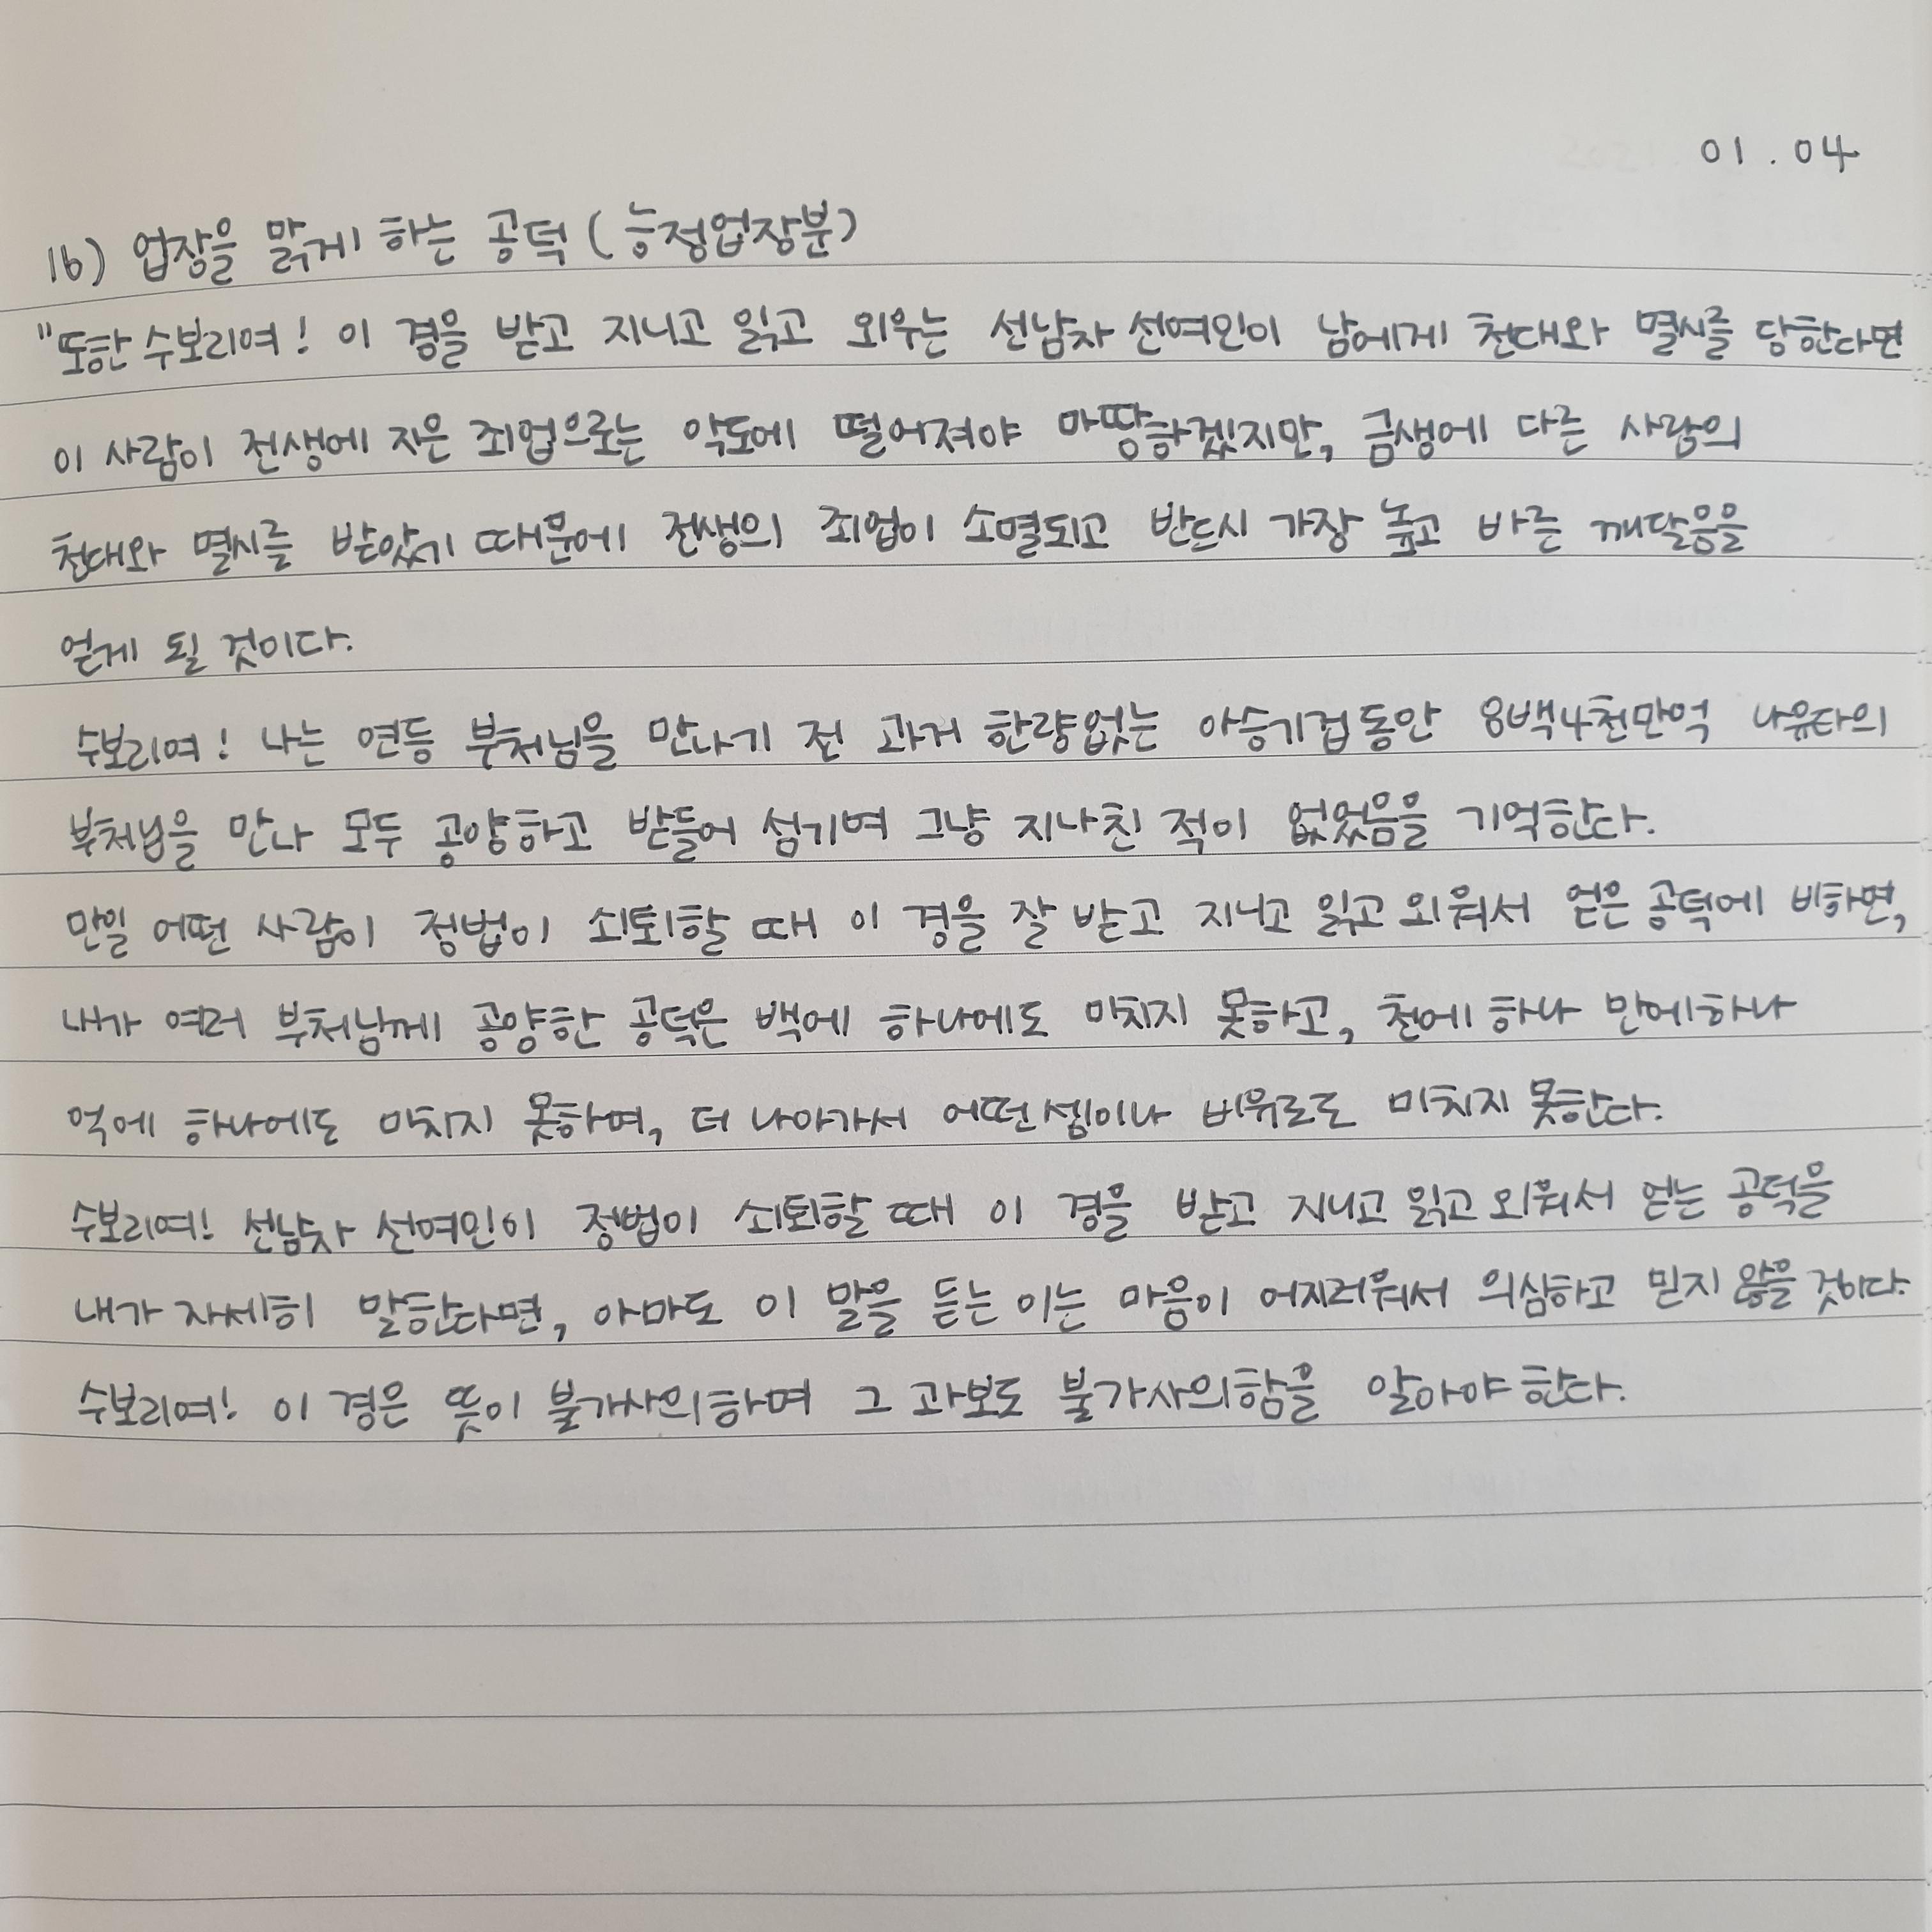 01.04
16) 업장을 맑게 하는 공덕 (능정업장분)
"또한 수보리여! 이 경을 받고 지니고 읽고 외우는 선남자 선여인이 남에게 천대와 멸시를 당한다면
이 사람이 전생에 지은 죄업으로는 악도에 떨어져야 마땅하겠지만, 금생에 다른 사람의
천대와 멸시를 받았기 때문에 전생의 죄업이 소멸되고 반드시 가장 높고 바른 깨달음을
얻게 될 것이다.
수보리여! 나는 연등 부처님을 만나기 전 과거 한량없는 아승기겁동안 8백4천만억 나유타의
부처님을 만나 모두 공양하고 받들어 섬기며 그냥 지나친 적이 없었음을 기억한다.
만일 어떤 사람이 정법이 쇠퇴할 때 이 경을 잘 받고 지니고 읽고 외워서 얻은 공덕에 비하면,
내가 여러 부처님께 공양한 공덕은 백에 하나에도 미치지 못하고, 천에 하나 만에하나
억에 하나에도 미치지 못하며, 더 나아가서 어떤셈이나 비유로도 미치지 못한다.
수보리여! 선남자 선여인이 정법이 쇠퇴할 때 이 경을 받고 지니고 읽고 외워서 얻는 공덕을
내가 자세히 말한다면, 아마도 이 말을 듣는 이는 마음이 어지러워서 의심하고 믿지 않을 것이다.
수보리여! 이 경은 뜻이 불가사의하며 그 과보도 불가사의함을 알아야 한다.